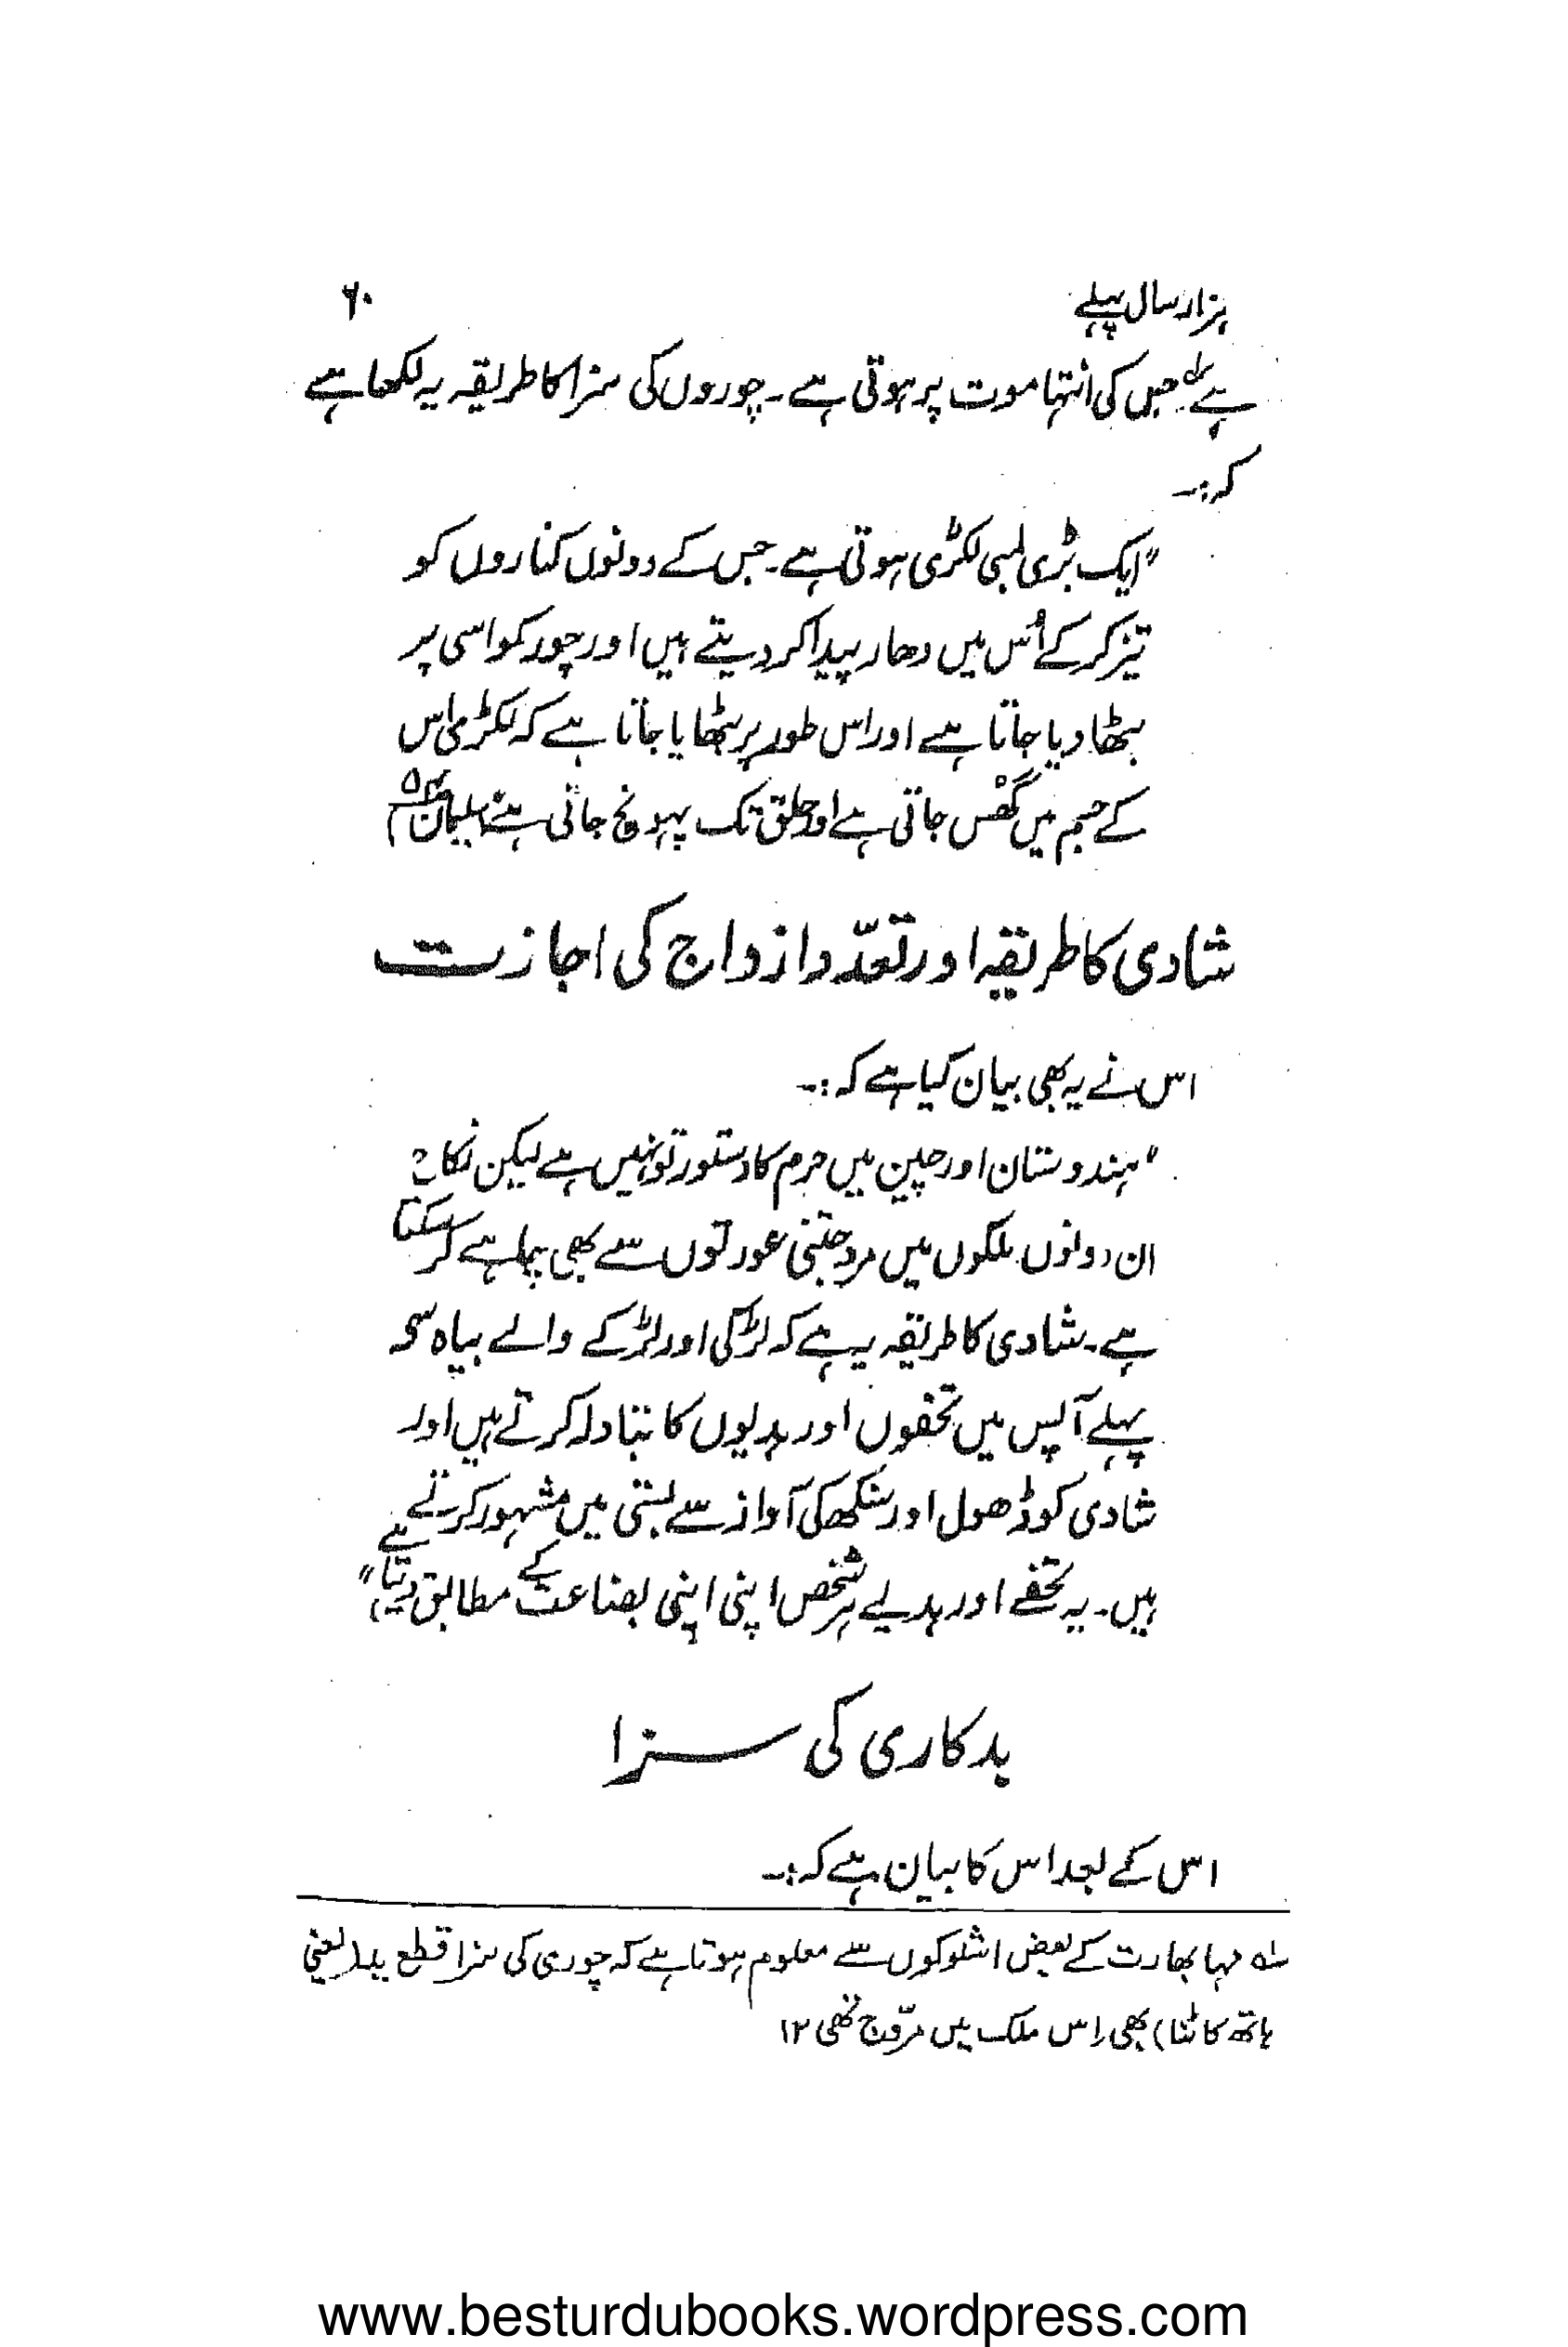 ہزار سال پہلے ۶۰
ہے؎۱ جس کی انتہا موت پر ہوتی ہے۔ چوروں کی سزا کا طریقہ یہ لکھا ہے
کہ:۔
"ایک بڑی لمبی لکڑی ہوتی ہے۔ جس کے دونوں کناروں کو
تیز کر کے اُس میں دھار پیدا کر دیتے ہیں اور چور کو اسی پر
بٹھا دیا جاتا ہے اور اس طور پر بٹھایا جاتا ہے کہ لکڑی اس
کے جسم میں گھُس جاتی ہے اور حلق تک پہونچ جاتی ہے" (سلیمان
شادی کا طریقہ اور تعدّد ازدواج کی اجازت
اس نے یہ بھی بیان کیا ہے کہ:۔
"ہندوستان اور چین میں حرم کا دستور تو نہیں ہے لیکن نکاح
ان دونوں ملکوں میں مرد جتنی عورتوں سے بھی چاہے کر سکتا
ہے۔ شادی کا طریقہ یہ ہے کہ لڑکی اور لڑکے والے بیاہ سے
پہلے آپس میں تحفوں اور ہدیوں کا تبادلہ کرتے ہیں اور
شادی کو ڈھول اور سنکھ کی آواز سے بستی میں مشہور کرتے
ہیں۔ یہ تحفے اور ہدیے ہر شخص اپنی اپنی بضاعت کے مطابق دیتا ہے"
بدکاری کی سزا
اس کے بعد اس کا بیان ہے کہ:۔
؎۱ مہا بھارت کے بعض اشلوکوں سے معلوم ہوتا ہے کہ چوری کی سزا قطع ید (یعنی
ہاتھ کاٹنا) بھی اس ملک میں مروّج تھی ۱۲
www.besturdubooks.wordpress.com